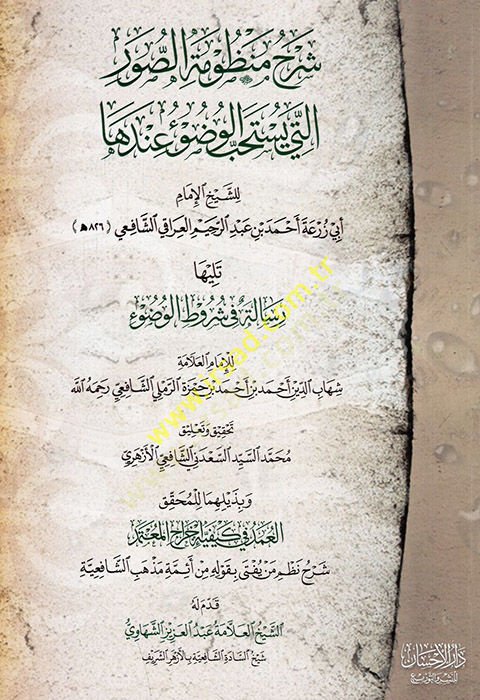 شَرْحُ مَنْظُومَةِ الصُّوَرِ
الَّتِي يُسْتَحَبُّ الوُضُوْءُ عِنْدَهَا
لِلشَّيْخِ الإِمَامِ
أَبِي زُرْعَةَ أَحْمَدَ بْنِ عَبْدِ الرَّحِيمِ العِرَاقِي الشَّافِعِي (٨٢٦ هـ)
تَلِيْهَا
رِسَالَةٌ فِي شُرُوْطِ الوُضُوْءِ
لِلْإِمَامِ العَلَّامَةِ
شِهَابِ الدِّيْنِ أَحْمَدَ بْنِ أَحْمَدَ بْنِ حَمْزَةَ الرَّمْلِي الشَّافِعِي رَحِمَهُ اللَّه
تَحْقِيْق وَتَعْلِيْق
مُحَمَّد السَّيِّد السَّعْدَنِي الشَّافِعِي الأَزْهَرِي
وَبِذَيْلِهِمَا لِلْمُحَقِّقِ
العُمَدُ فِي كَيْفِيَّةِ إِخْرَاجِ المُعْتَمَدِ
شَرْحُ نَظْمِ مَنْ يُفْتَى بِقَوْلِهِ مِنْ أَئِمَّةِ مَذْهَبِ الشَّافِعِيَّةِ
قَدَّمَ لَهُ
الشَّيْخُ العَلَّامَةُ عَبْدُ العَزِيْزِ الشَّهَاوِيُّ
شَيْخُ السَّادَةِ الشَّافِعِيَّةِ بِالأَزْهَرِ الشَّرِيفِ
دَارُ الإِحْسَانِ
لِلنَّشْرِ وَالتَّوْزِيْعِ